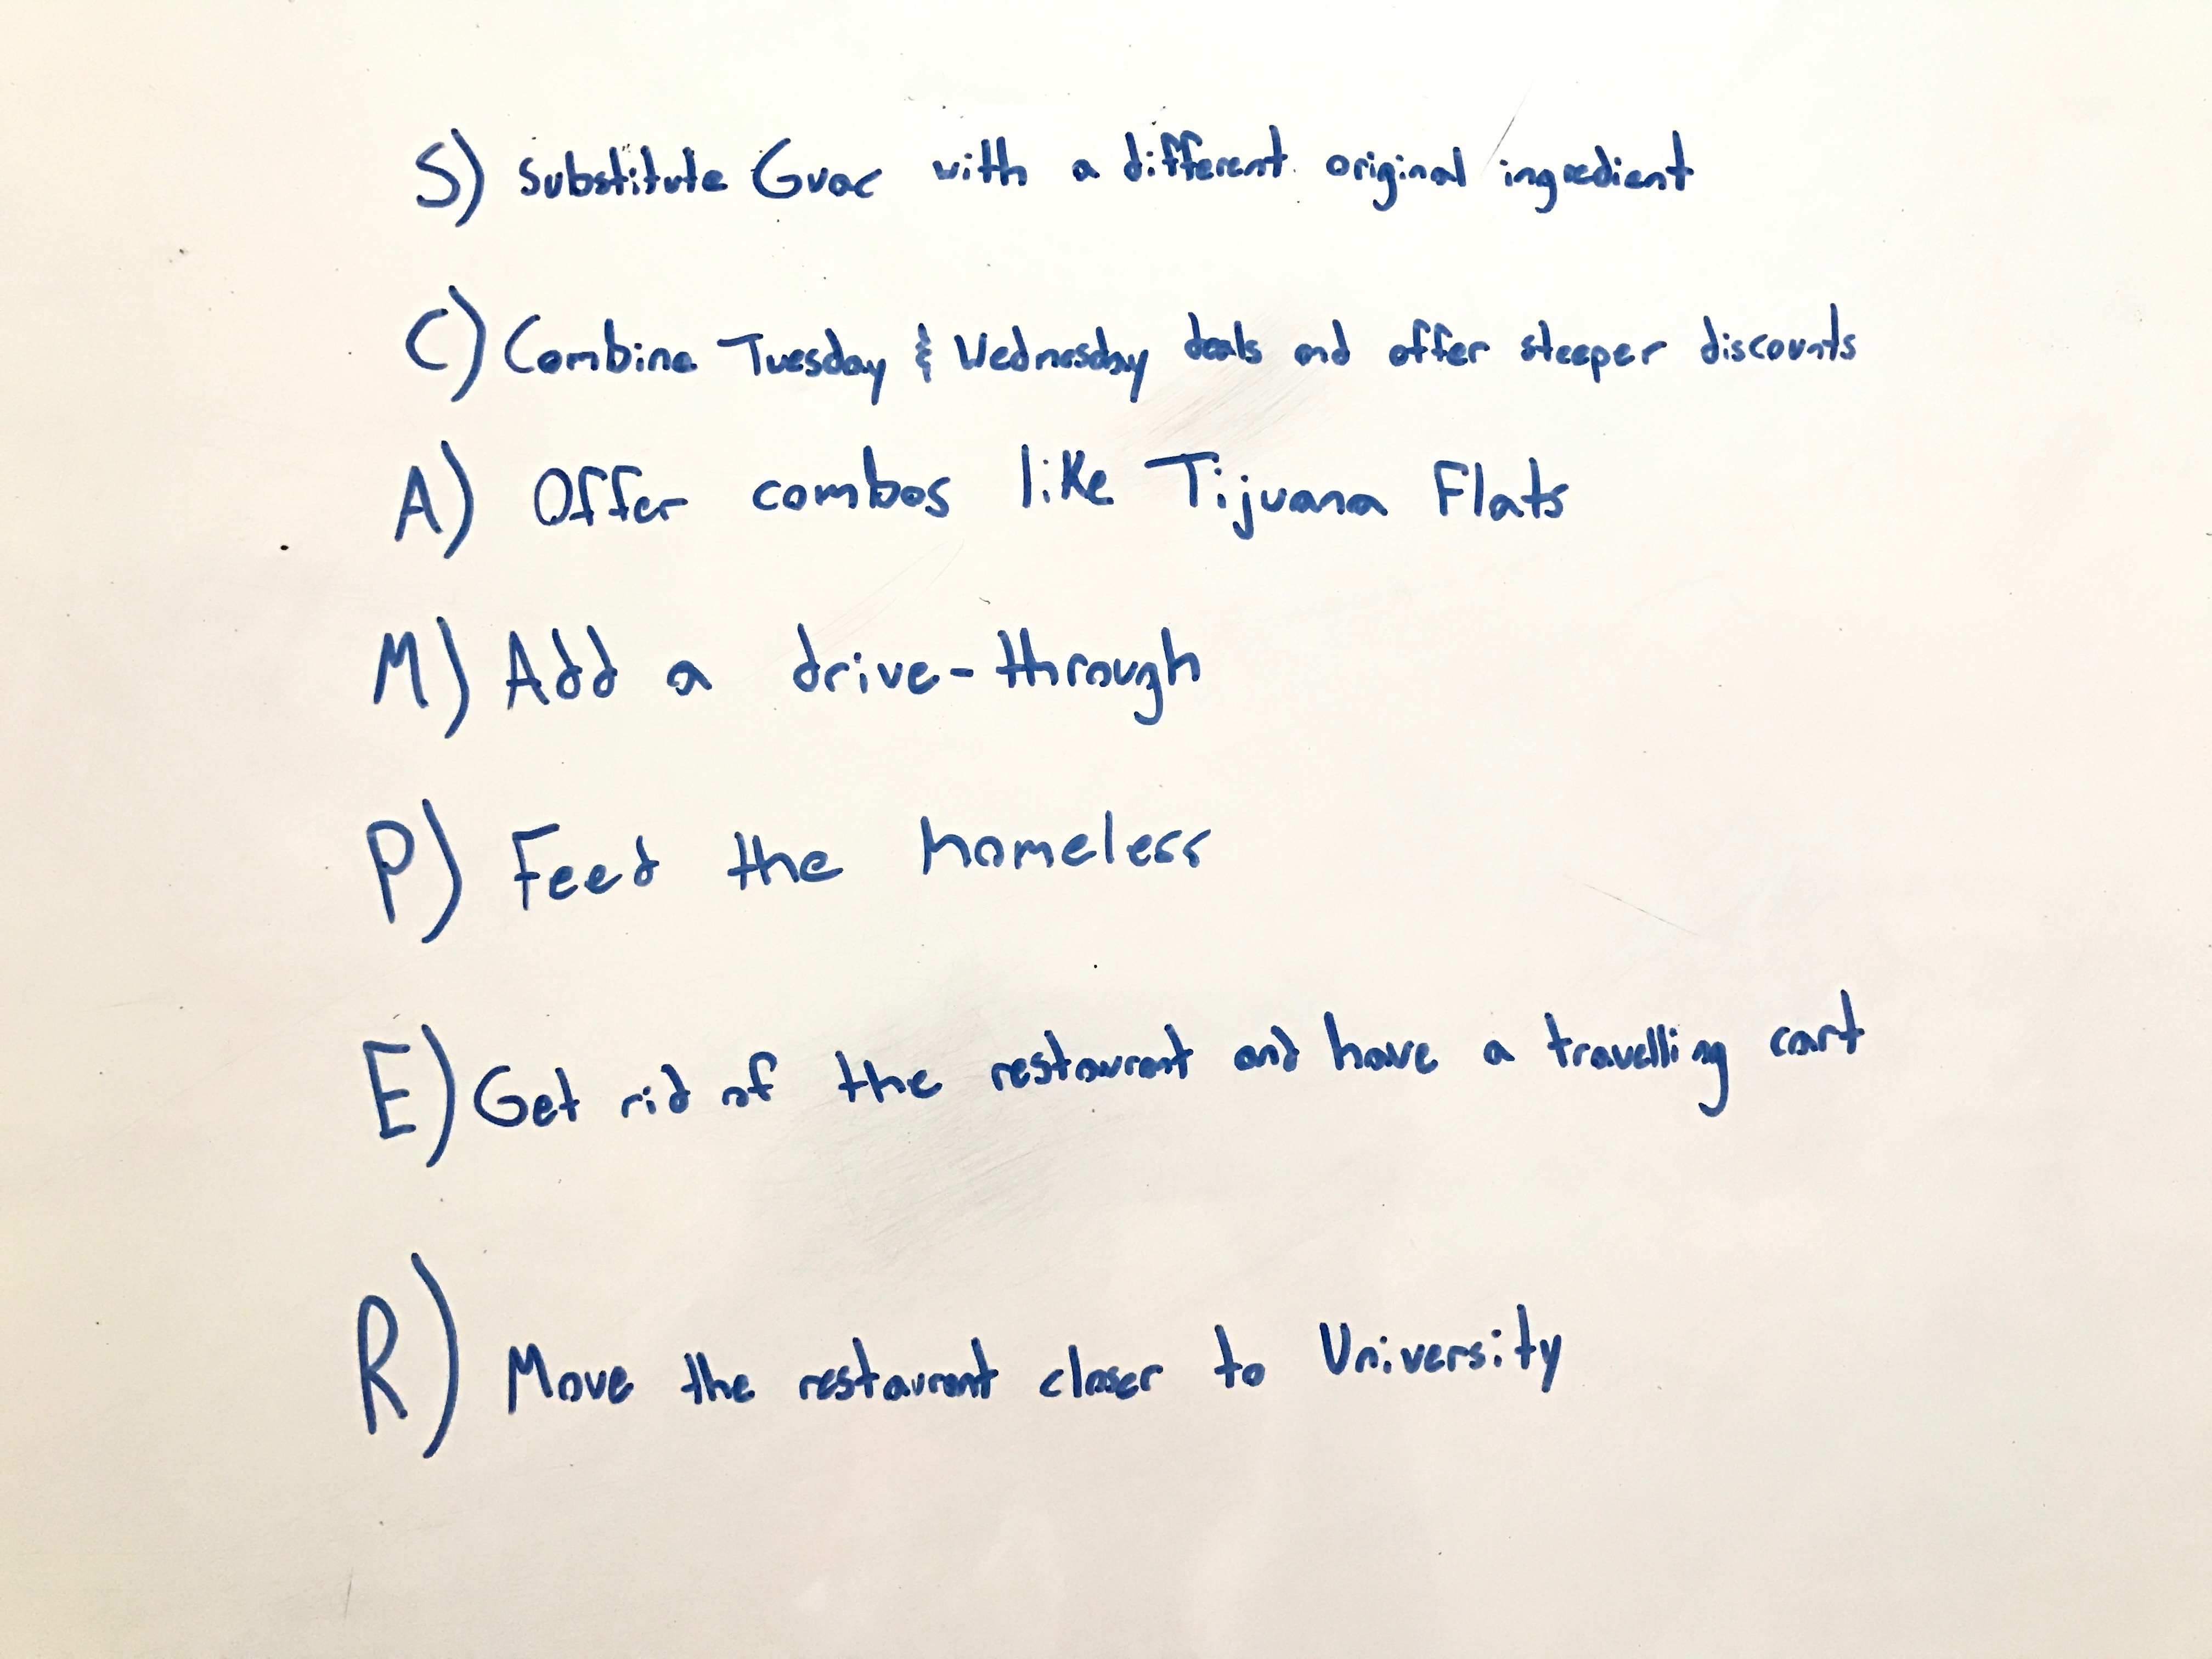 S) Substitute Guac with a different original ingredient
C) Combine Tuesday & Wednesday deals and offer steeper discounts
A) Offer combos like Tijuana Flats
M) Add a drive-through
P) Feed the homeless
E) Get rid of the restaurant and have a travelling cart
R) Move the restaurant closer to University